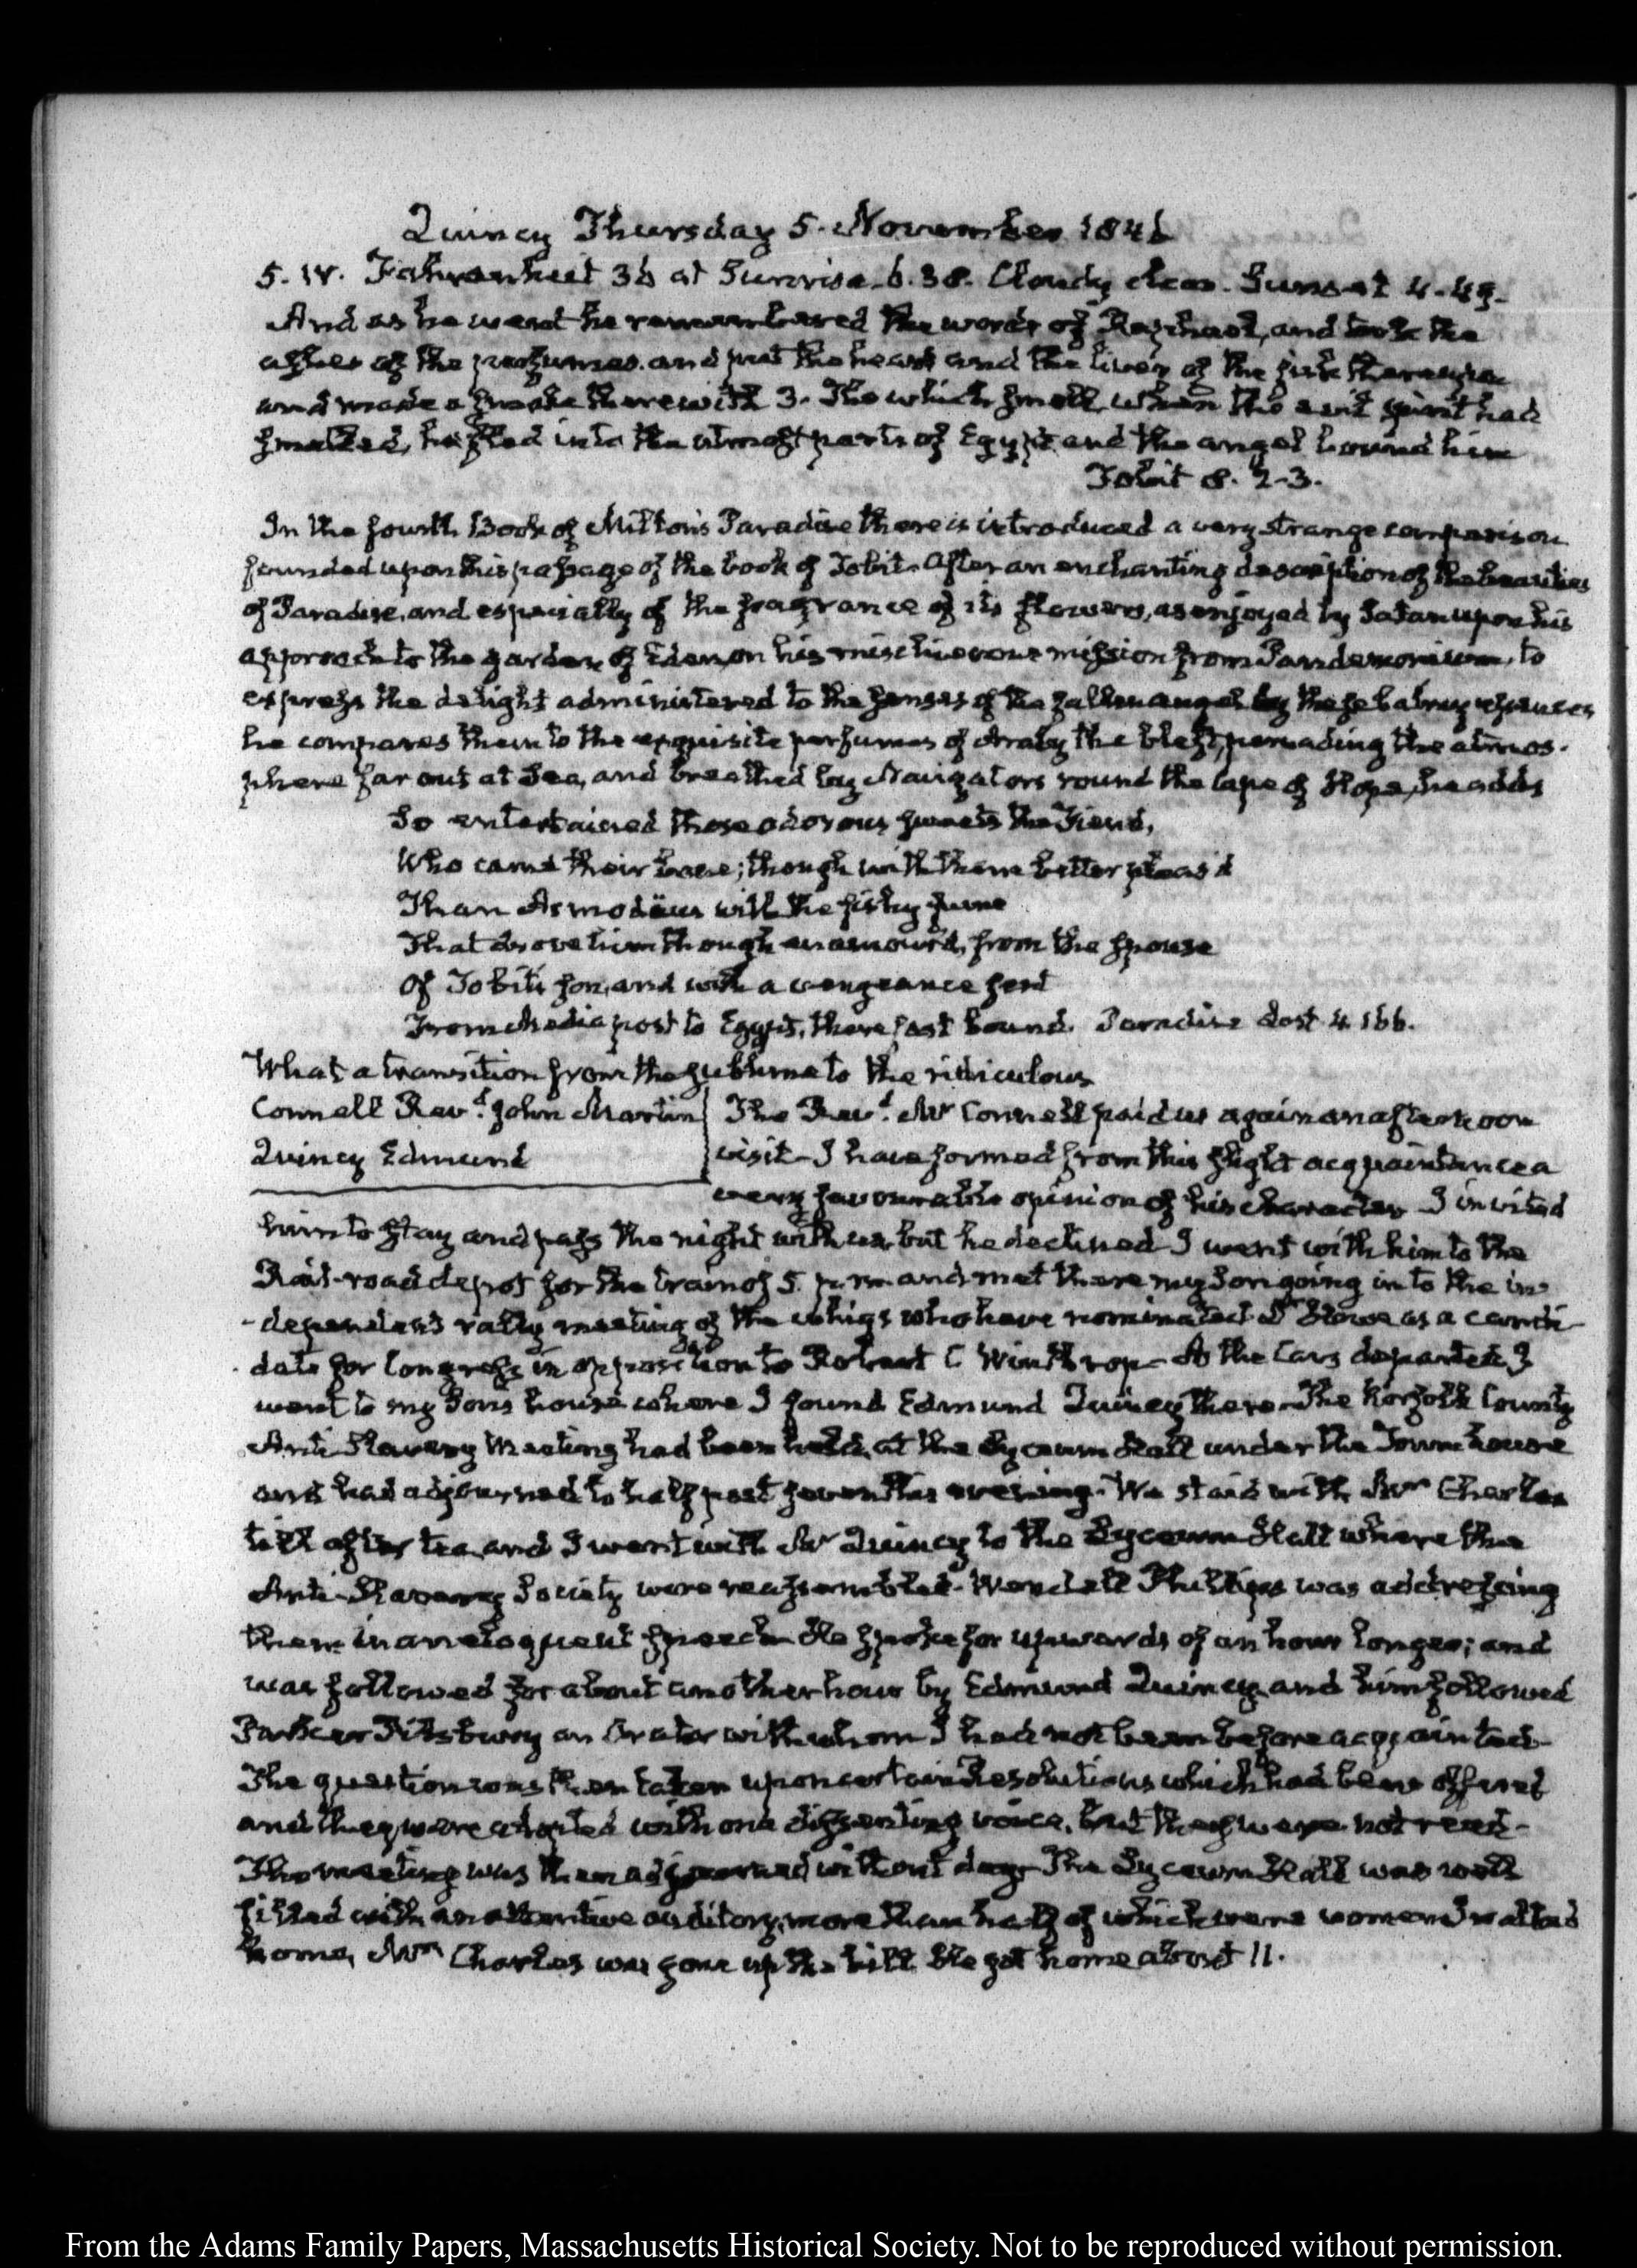 Quincy Thursday 5. November 1846
5. IV. Fahrenheit 36 at Sunrise 6.38. Cloudy clear. Sunset 4.49.
And as he went he remembered the words of Raphael, and took the
ashes of the perfumes. and put the heart and the liver of the fish thereupon
and made a smoke therewith 3. The which smell, when the evil spirit had
smelled, he fled into the utmost parts of Egypt, and the angel bound him
Tobit 8. 2-3.
In the fourth Book of Milton's Paradise there is introduced a very strange comparison
founded upon this passage of the book of Tobit. After an enchanting description of the beauties
of Paradise, and especially of the fragrance of its flowers, as enjoyed by Satan upon his
approach to the garden of Eden, on his mischievous mission from Pandemonium, to
express the delight administered to the senses of the fallen angel by these balmy
he compares them to the exquisite perfumes of Araby the blest, pervading the atmos-
phere far out at Sea, and breathed by Navigators round the Cape of Hope, he adds
So entertained those odorous sweets the Fiend,
Who came their bane; though with them better pleas'd
Than Asmodäus with the fishy fume
That drove him though enamour'd, from the spouse
Of Tobit's son, and with a vengeance sent
From Media post to Egypt, there fast bound. Paradise Lost 4. 166.
What a transition from the sublime to the ridiculous
Connell Revd. John Martin
Quincy Edmund
The Revd. Mr Connell paid us again an afternoon
visit. I have formed from this slight acquaintance a
very favourable opinion of his character. I invited
him to stay and pass the night with us, but he declined I went with him to the
Rail-road depot for the train of 5. p.m. and met there my Son going in to the in-
-dependent rally meeting of the whigs who have nominated Dr Howe as a candi-
date for Congress in opposition to Robert C Winthrop. As the Cars departed, I
went to my Son's house where I found Edmund Quincy there. The Norfolk County
Anti-Slavery Meeting had been held, at the Lyceum Hall under the Town house
and had adjourned to half past seven this evening. We staid with Mrs Charles
till after tea, and I went with Mr Quincy to the Lyceum Hall where the
Anti-Slavery Society were reassembled. Wendell Phillips was addressing
them in an eloquent speech He spoke for upwards of an hour longer; and
was followed for about another hour by Edmund Quincy, and him followed
Parker Pillsbury an Orator with whom I had not been before acquainted.
The question was then taken upon certain Resolutions which had been offered
and they were adopted with one dissenting voice, but they were not read-
The meeting was then adjourned without day. The Lyceum Hall was well
filled with an attentive auditory, more than half of which were women I walked
home, Mrs Charles was gone up the hill She got home about 11.
From the Adams Family Papers, Massachusetts Historical Society. Not to be reproduced without permission.